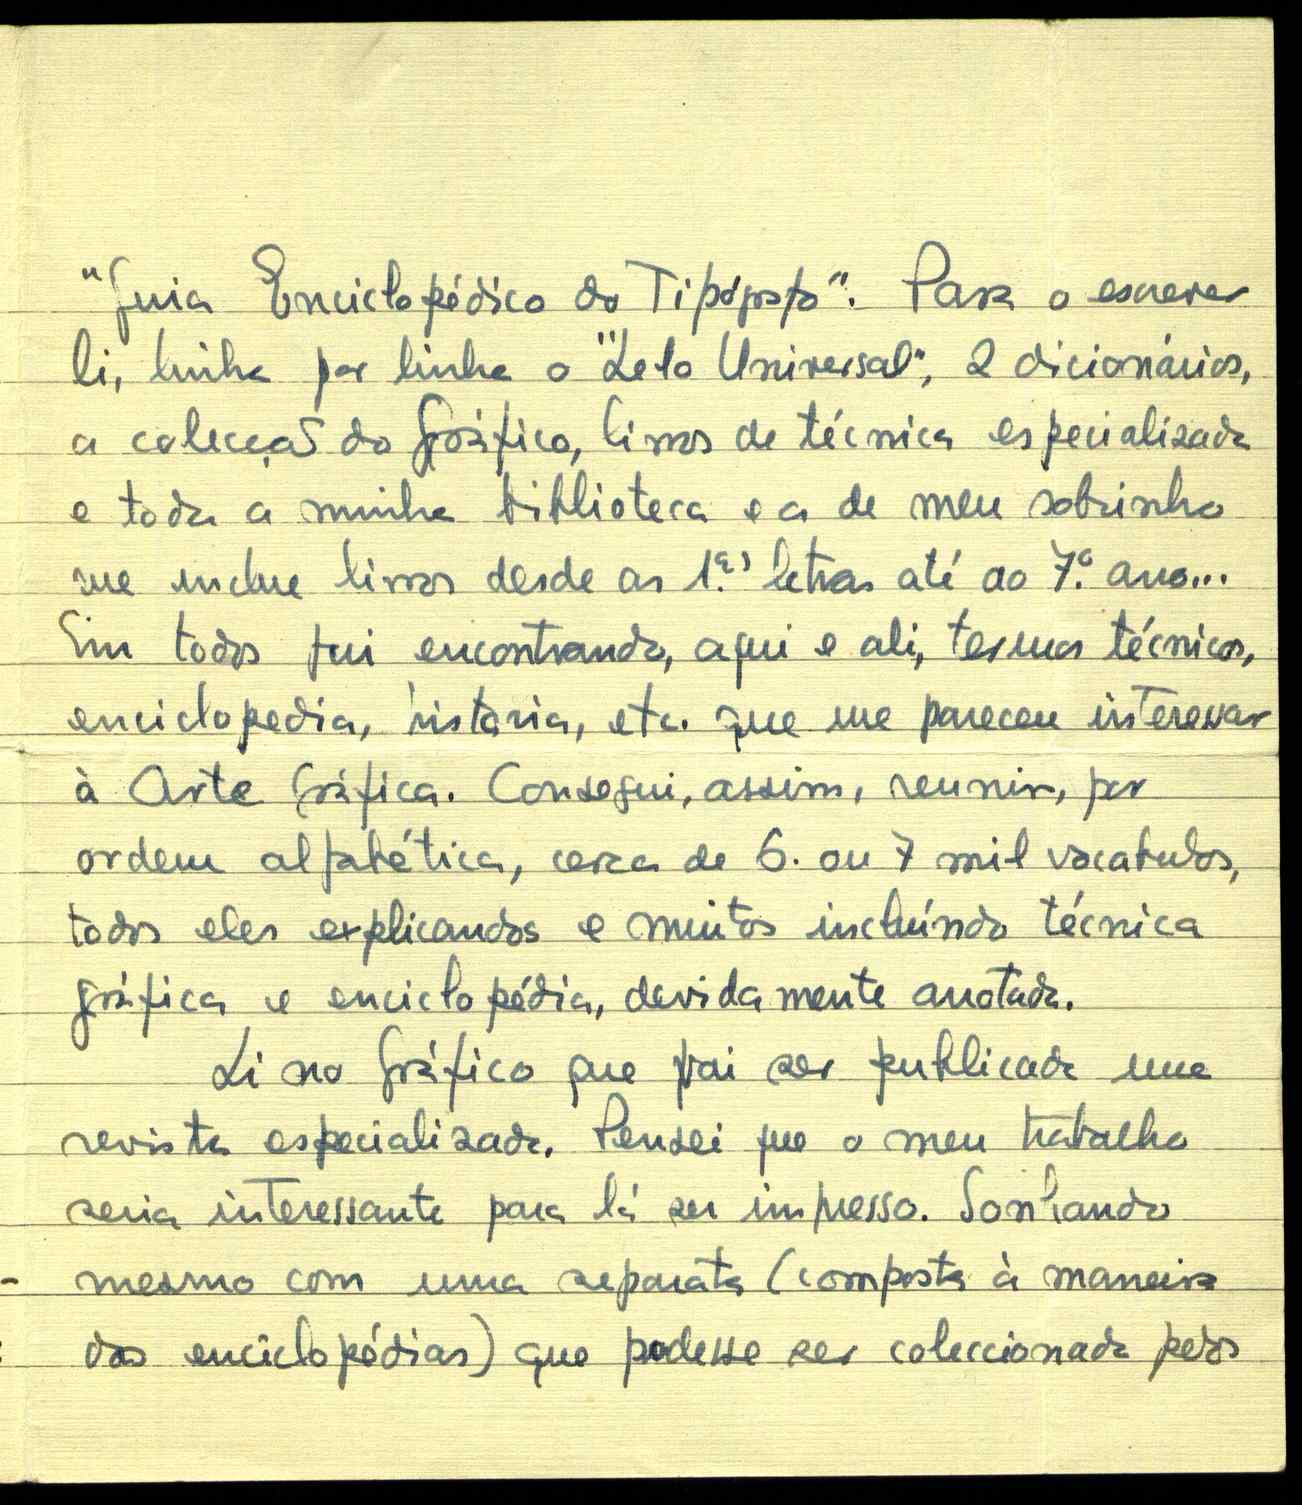 "Guia Enciclopédico do Tipógrafo". Para o escrever
li, linha por linha o "Lelo Universal", 2 dicionários,
a colecção do Gráfico, livros de técnica especializada
e toda a minha biblioteca e a de meu sobrinho
que inclue livros desde as 1.as letras até ao 7.º ano...
Em todos fui encontrando, aqui e ali, termos técnicos,
enciclopedia, historia, etc. que me pareceu interessar
à Arte Gráfica. Consegui, assim, reunir, por
ordem alfabética, cerca de 6. ou 7 mil vocabulos,
todos eles explicandos e muitos incluíndo técnica
gráfica e enciclopédia, devidamente anotada.
Li no Gráfico que vai ser publicada uma
revista especializada. Pensei que o meu trabalho
seria interessante para lá ser impresso. Sonhando
mesmo com uma separata (composta à maneira
das enciclopédias) que podesse ser coleccionada pelos